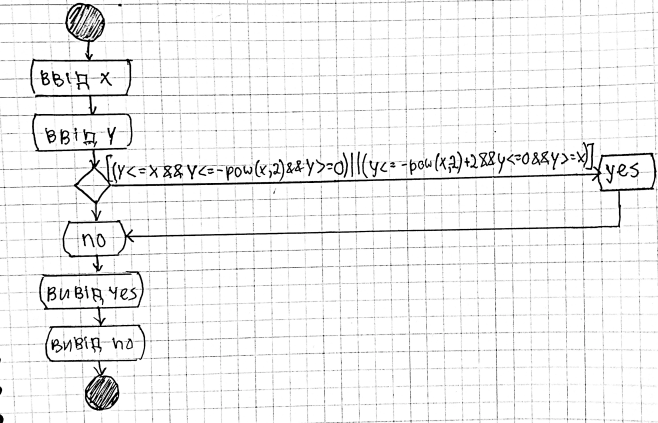 ввід x
ввід y
[(y<=x && y<=-pow(x,2)&&y>=0)||((y<=-pow(x,2)+2&&y<=0&&y>=x)]
yes
no
вивід yes
вивід no